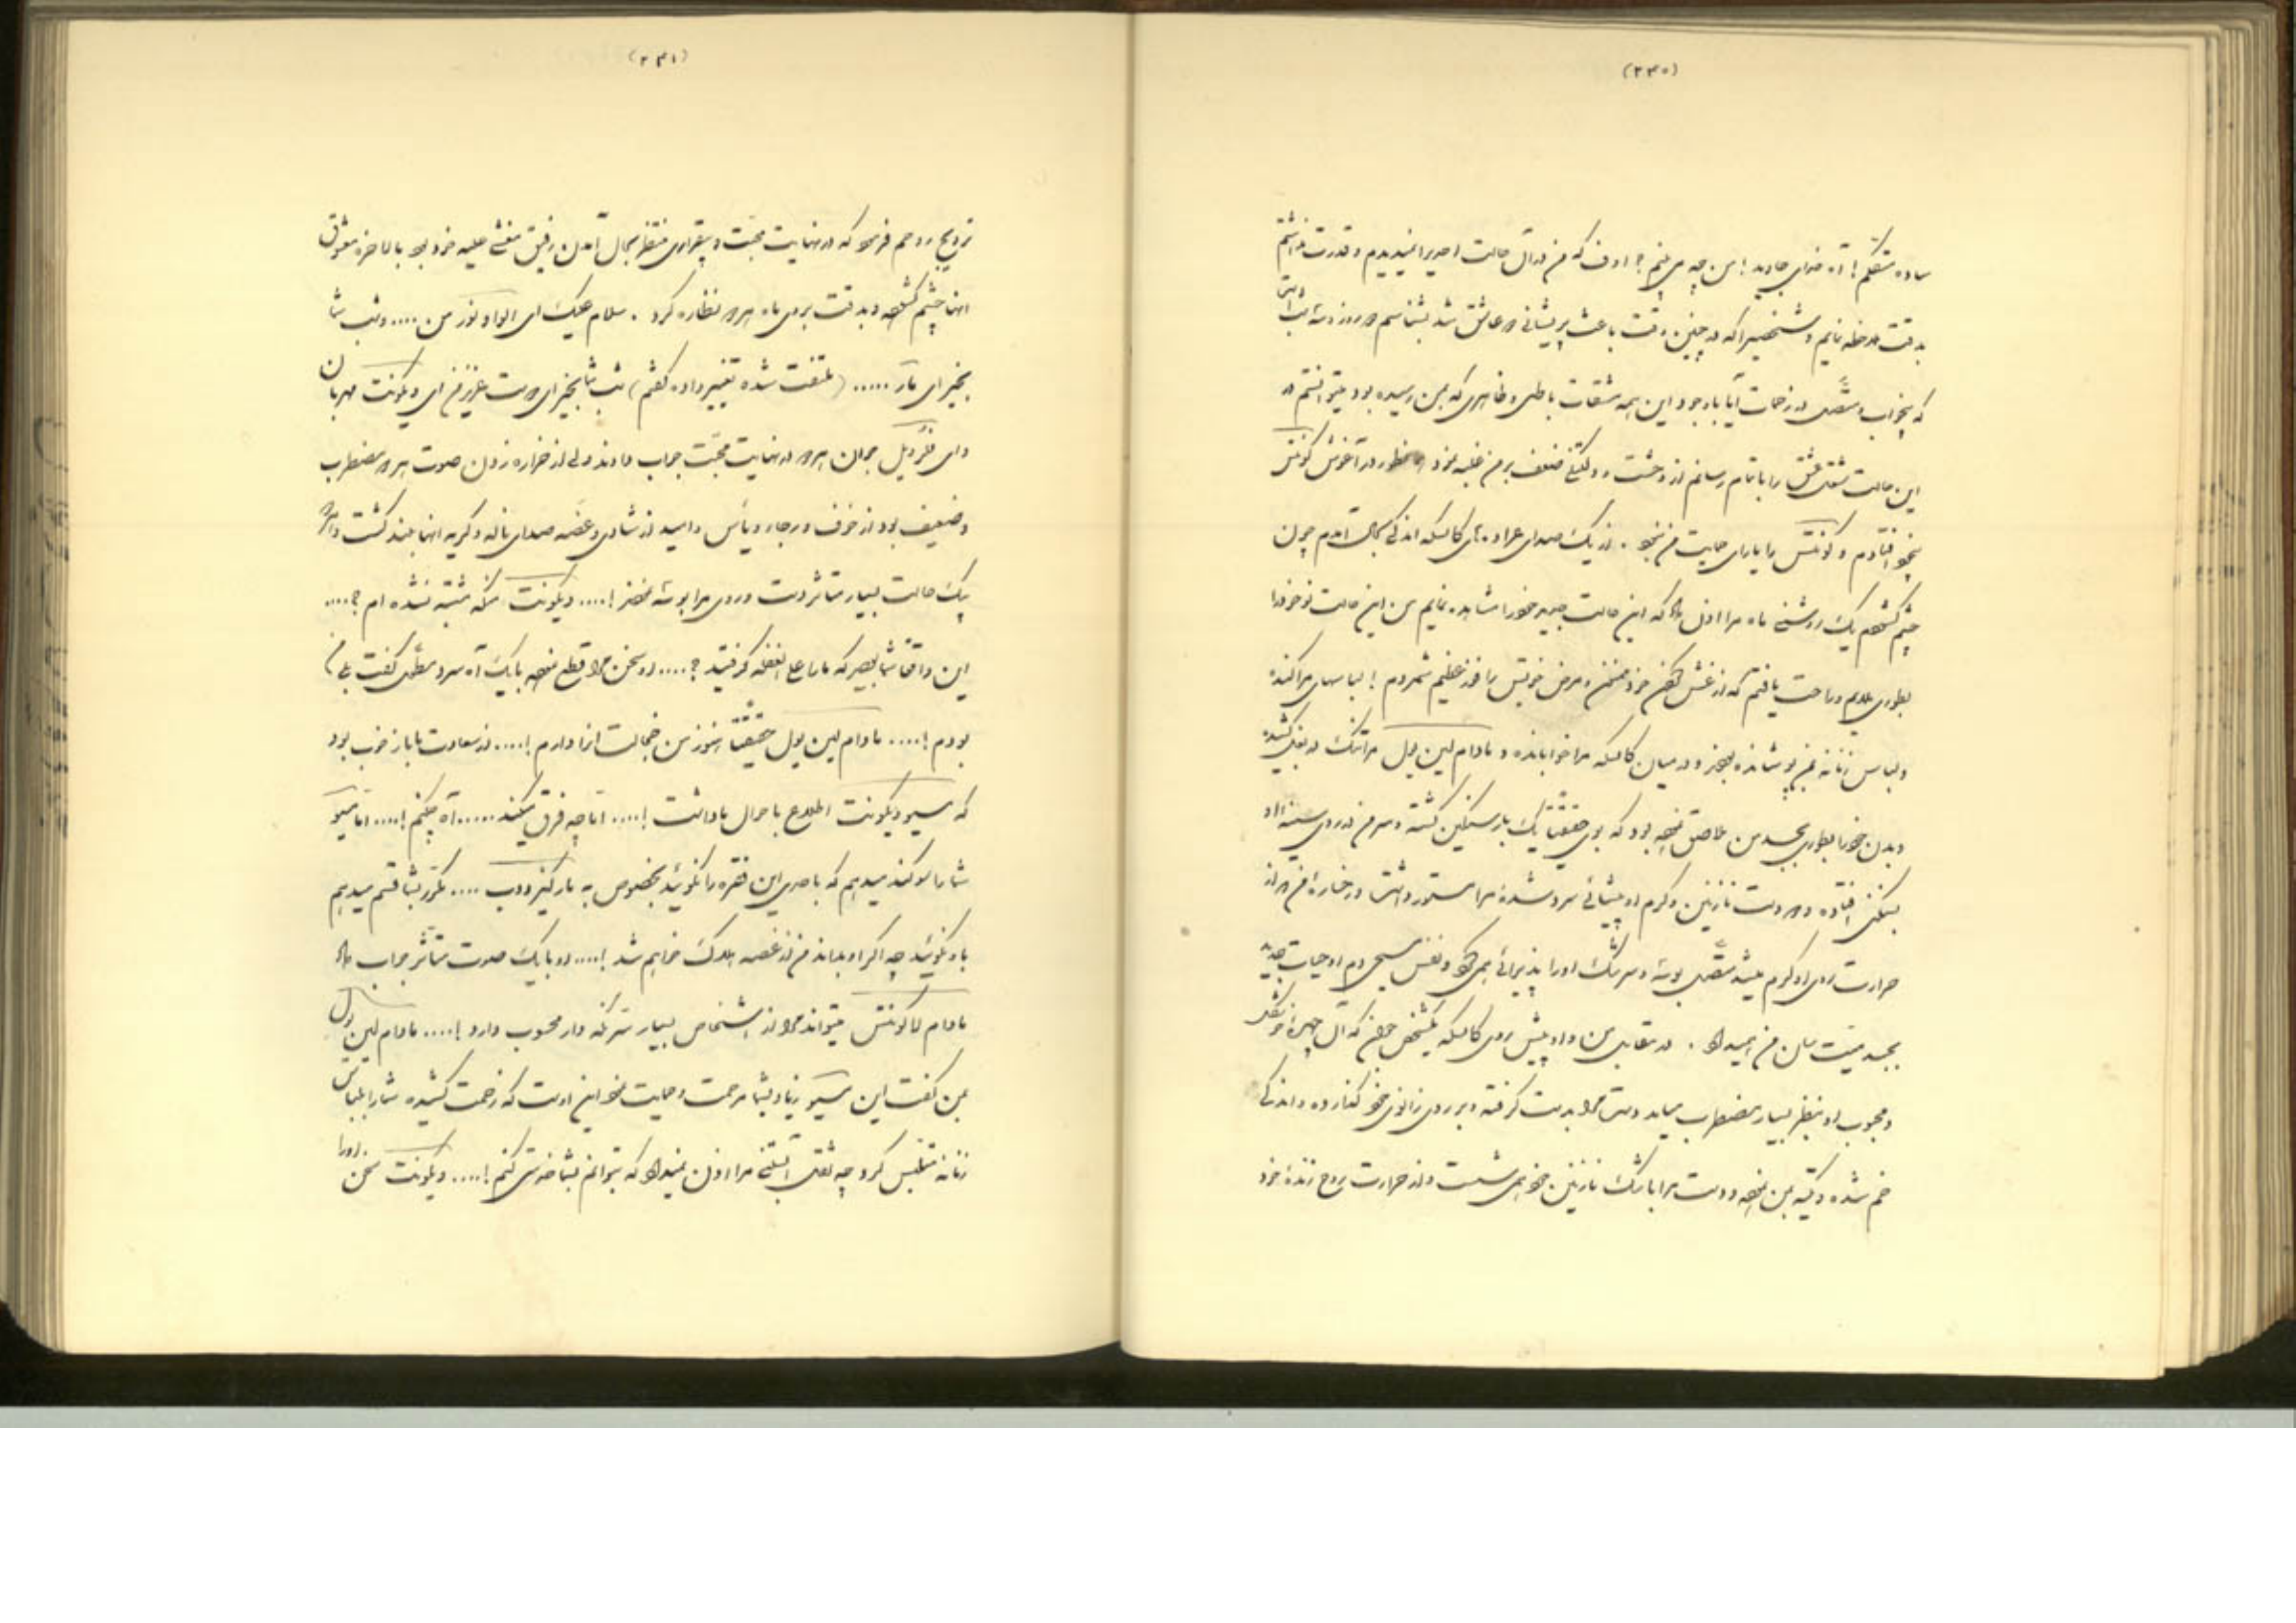 (۳۴۰)
ساده متکلم! آه خدای جاوید! من چه می بینم؟ اوف که من در آن حالت احدیرا نمیدیدم و قدرت نداشتم
بدقت ملاحظه نمایم و شخصیرا که در چنین وقت باعث پریشانی دو عاشق شد بشناسم دو روز و سه شب است
که بیخواب و متصل در زحمت آیا با وجود این همه مشقات باطنی و ظاهری که بمن رسیده بود میتوانستم در
این حالت مشق عشق را باتمام رسانم از وحشت و دلتنگی ضعف بر من غلبه نمود در آغوش کونتس
بیخود افتادم و کونتس را یارای حمایت من نبود. از یک صدای عراده های کالسکه اندکی بحال آمدم چون
چشم گشودم یک روشنی ماه مرا اذن داد که این حالت جدید خود را مشاهده نمایم من این حالت نو خود را
بطوری ملایم و راحت یافتم که از غش کردن خود ممنون و مرض خویش را فوز عظیم شمردم! لباسهای مرا کنده
و لباس زنانه بمن پوشانده بودند و در میان کالسکه مرا خوابانده و مادام لین یول مرا تنگ در بغل کشیده
و بدن خود را بطوری بجسد من ملاصق نموده بود که بوی حقیقتاً یک بار سنگین گشته و سر من در روی سینه او
بسنگینی افتاده و دو دست نازنین و گرم او پیشانی سرد شده مرا مستور داشت و رخساره من از
حرارت روی او گرم میشد متصل بوسه و سرشک او را پذیرائی می نمود و نفس مسیحی دم او حیات جدید
بجسد میت سان من میداد. در مقابل من و او پیش روی کالسکه یکشخص جوان که آن چهره خوشگل
و محبوب او بنظر بسیار مضطرب میاید دستم را بدست گرفته و بر روی زانوی خود گذارده و اندکی
خم شده و تکیه بمن نموده و دست مرا با اشک نازنین خود می شست و از حرارت روح زنده خود
(۳۴۱)
ترویح روحم فرمود که در نهایت محبت و بیقراری منتظر بحال آمدن رفیق مغشی علیه خود بود بالاخره معشوق
آنها چشم گشوده و بدقت بروی ماه هردو نظاره کرد. سلام علیک ای الواونور من .... و شب شما
بخیر ای مار..... (ملتفت شده تغییر داده گفتم) شب شما بخیر ای دوست عزیز من ای ویکونت مهربان
و ای فلردیل جوان هردو در نهایت محبت جواب دادند ولی از خراره زدن صوت هردو مضطرب
و ضعیف بود از خوف و رجا و یأس و امید از شادی و غصه صدای ناله و گریه آنها بلند گشت و هردو
بیک حالت بسیار متأثر دست و روی مرا بوسه نمودند!.... ویکونت مگر مشتبه نشده ام؟....
این واقعاً شما بودید که ما را علی الغفله گرفتید؟.... او سخن مرا قطع نموده با یک آه سرد متصل گفت بلی من
بودم!.... مادام لین یول حقیقتاً هنوز من خجالت آنرا دارم!.... از سعادت ما باز خوب بود
که مسیو ویکونت اطلاع باحوال ما داشت!.... اما چه فرق میکند..... آه چکنم!.... اما مسیو
شما را سوگند میدهم که باحدی این فقره را نگوئید بخصوص به مارکیز دوب .... مکرر بشما قسم میدهم
باو نگوئید چه اگر او بداند من از غصه هلاک خواهم شد!.... او با یک صوت متأثر جواب داد
مادام لاکونتس میتواند مرا از اشخاص بسیار سر نگه دار محسوب دارد!.... مادام لین یول
بمن گفت این مسیو زیاد بشما مرحمت و حمایت نمود این اوست که زحمت کشیده شما را بلباس
زنانه متلبس کرد چه ثقل آبستنی مرا اذن نمیداد که بتوانم بشما خدمتی کنم!.... ویکونت سخن او را